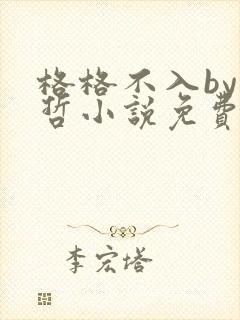 格格不入by
哲小說免費
李宏塔